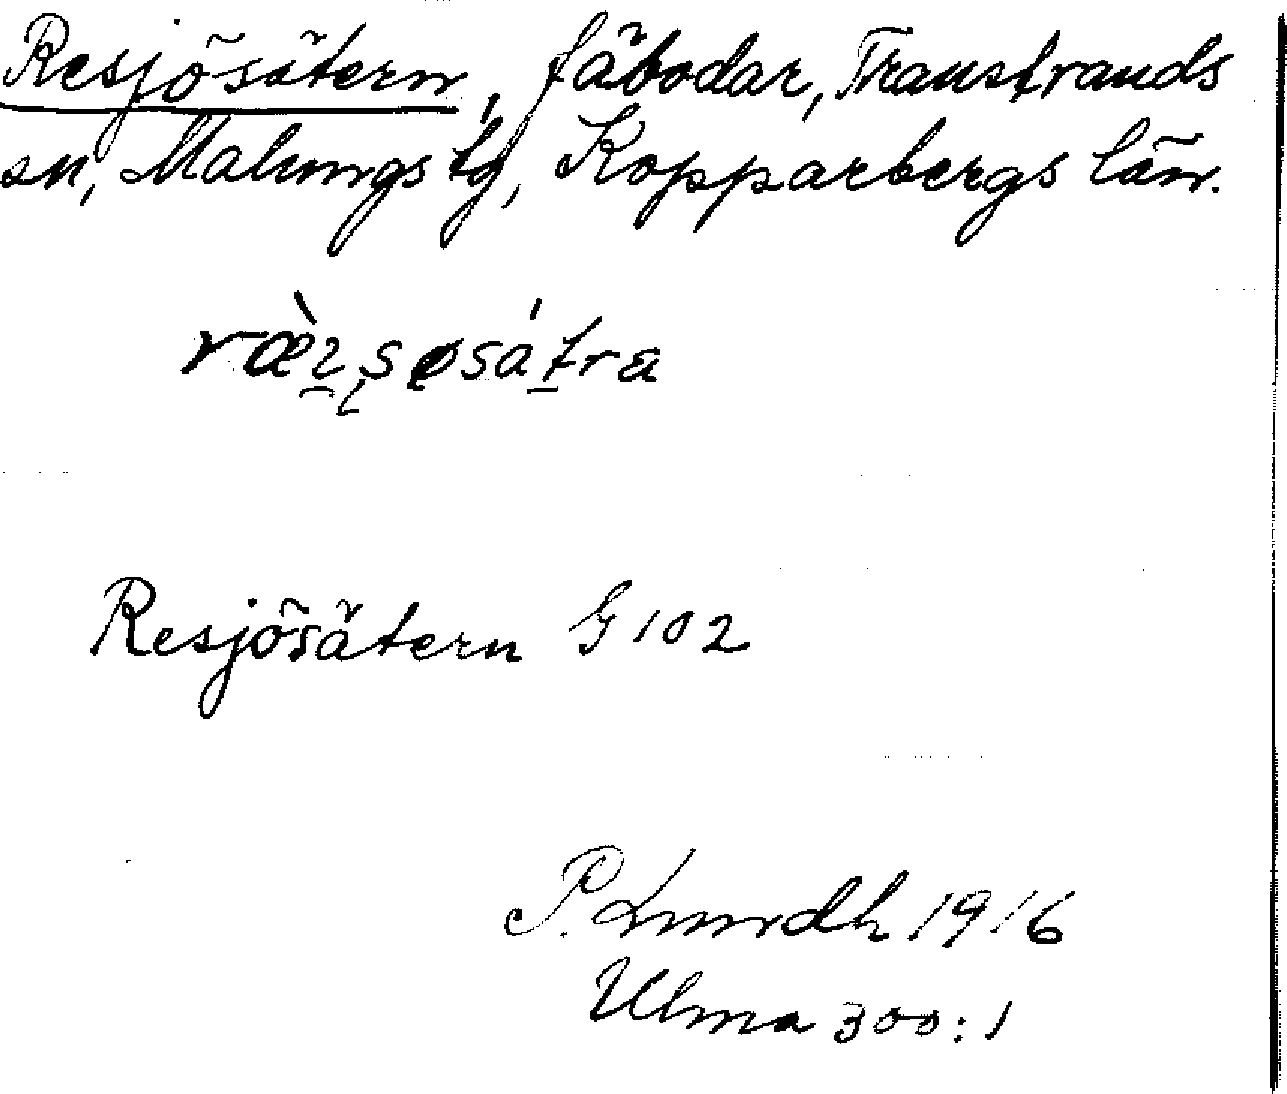 Resjösätern, fäbodar, Transtrands
sn, Malungs tg, Kopparbergs län.
Resjösätern G 102
P. Lundh 1916
Ulma 300:1